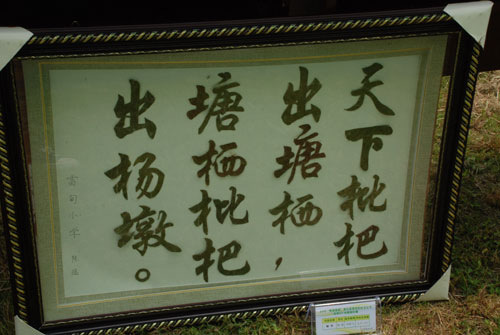 天下枇杷
出塘栖，
塘栖枇杷
出杨墩。